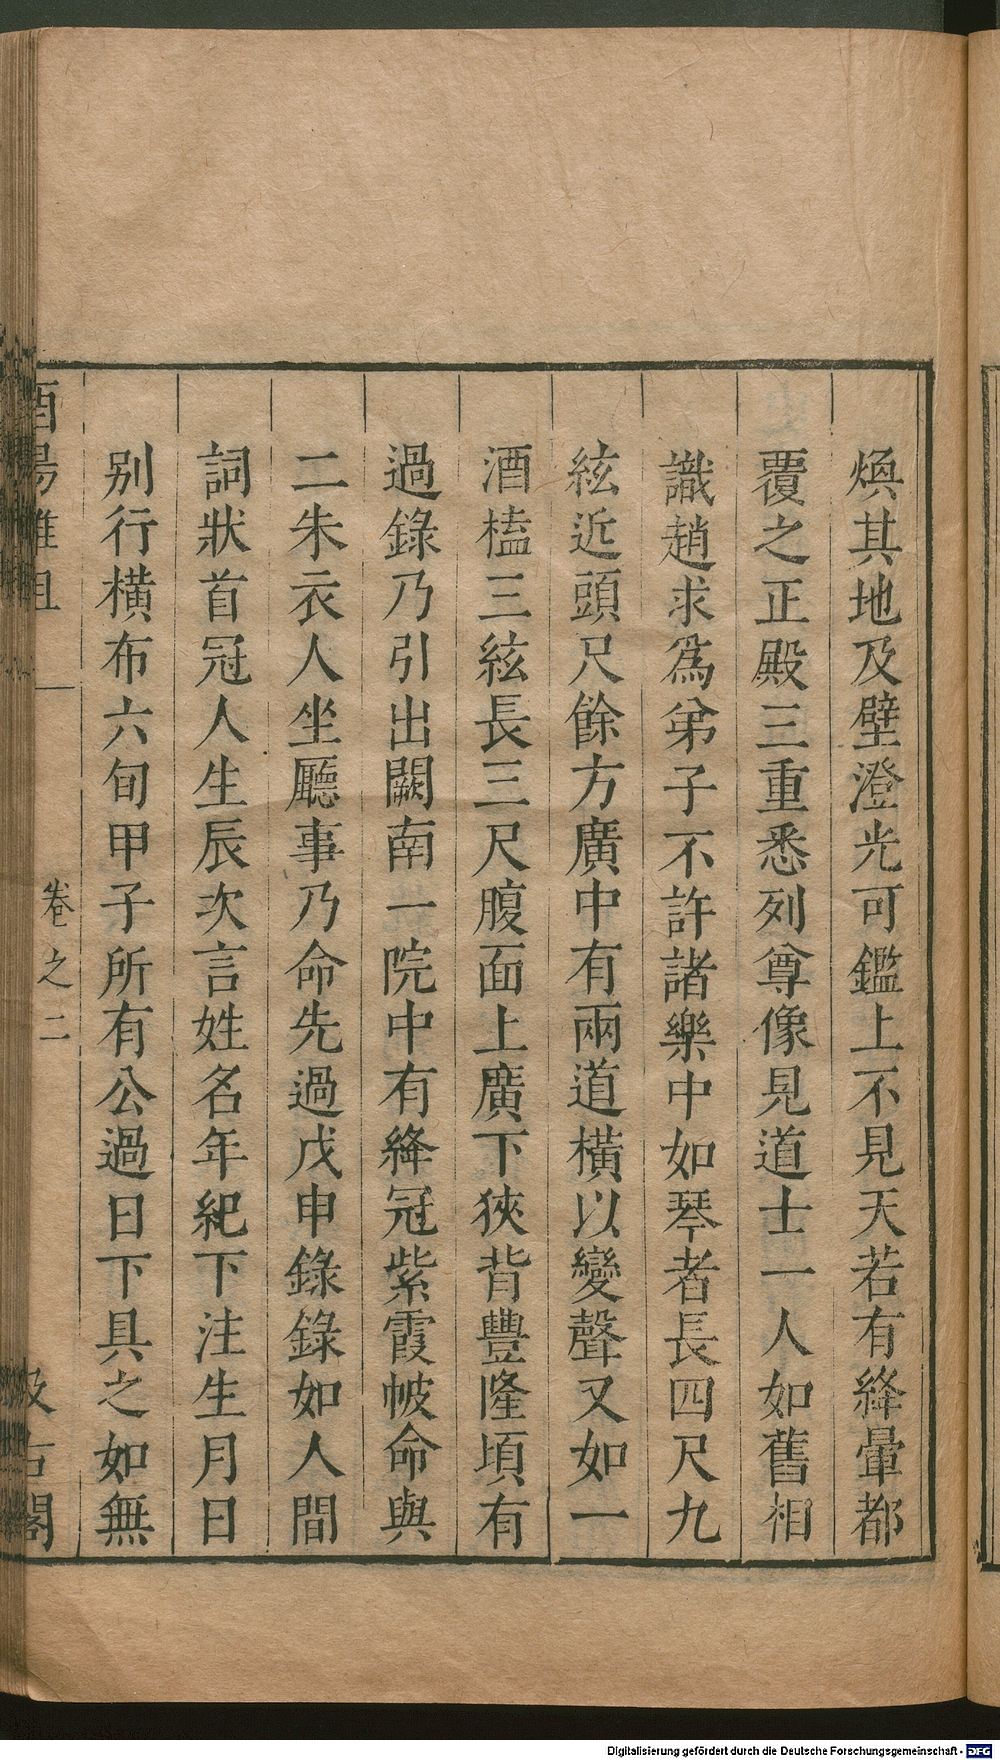 煥其地及壁澄光可鑑上不見天若有絳暈都
覆之正殿三重悉列尊像見道士一人如舊相
識趙求爲弟子不許諸樂中如琴者長四尺九
絃近頭尺餘方廣中有兩道橫以變聲又如一
酒榼三絃長三尺腹面上廣下狹背豐隆頃有
過錄乃引出闕南一院中有絳冠紫霞帔命與
二朱衣人坐廳事乃命先過戊申錄錄如人間
詞狀首冠人生辰次言姓名年紀下注生月日
别行橫布六旬甲子所有公過日下具之如無
酉陽雜俎 卷之二 汲古閣
Digitalisierung gefördert durch die Deutsche Forschungsgemeinschaft - DFG